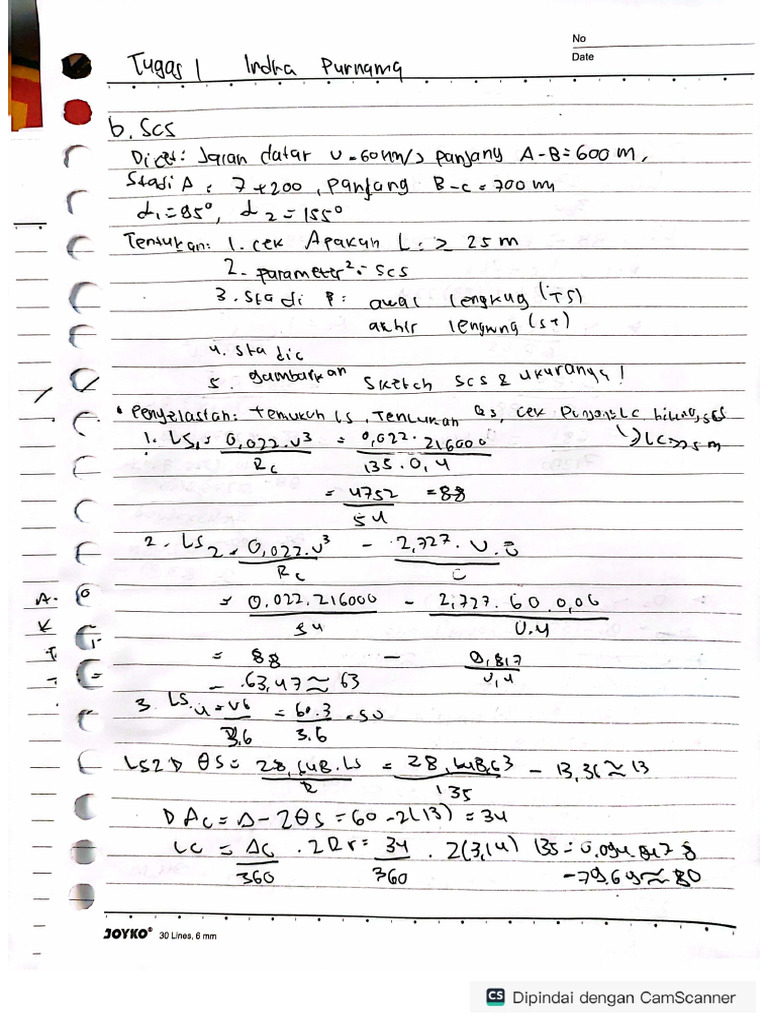 No
Date
Tugas 1 Indra Purnama
b. Scs
Diket: Jalan datar V = 60 km/s panjang A-B = 600 m,
Stadi A = 7+200, panjang B-C = 700 m
d1 = 95°, d2 = 155°
Tentukan: 1. cek Apakah L ≥ 25 m
2. parameter²: SCS
3. Stadi P: awal lengkug (TS)
akhir lengkung (ST)
4. Sta dic
5. gambarkan Sketch SCS & ukuranya!
• Penjelastan: temukan Ls, Tentukan Qs, cek
1. LS1 = 0,022.V³ / Rc = 0,022. 216000 / 135.0,4
↳ Lc > 25 m
= 4752 / 54 = 88
2. LS2 = 0,022.V³ / Rc - 2,727. V. e / C
A.
= 0.022.216000 / 54 - 2,727.60.0,06 / 0.4
K
= 88 - 9,817 / 0,4
= 63,47 ≈ 63
3. LS = V6 / 3.6 = 60.3 / 3.6 = 50
LS2 D θS = 28,648.LS / R = 28,648.63 / 135 - 13,36 ≈ 13
D Ac = Δ - 2θS = 60 - 2(13) = 34
LC = ΔC / 360 . 2πr = 34 / 360 . 2(3,14) 135 = 0.094 847 8
- 79.69 ≈ 80
JOYKO® 30 Lines, 6 mm
CS Dipindai dengan CamScanner